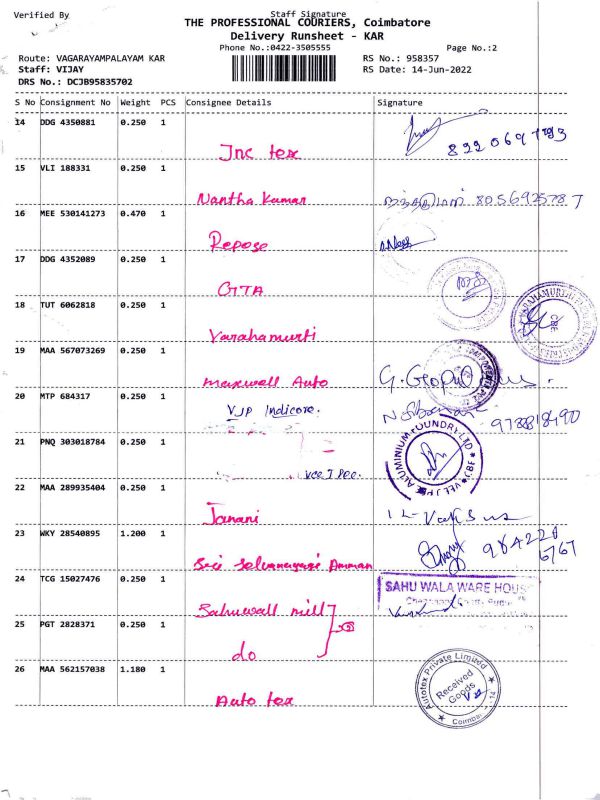 Verified By
Staff Signature
THE PROFESSIONAL COURIERS, Coimbatore
Delivery Runsheet - KAR
Phone No.:0422-3505555
Page No.:2
Route: VAGARAYAMPALAYAM KAR
RS No.: 958357
Staff: VIJAY
RS Date: 14-Jun-2022
DRS No.: DCJB95835702
S No Consignment No Weight PCS Consignee Details Signature
14 DDG 4350881 0.250 1
Jnc tex
8220697793
15 VLI 188331 0.250 1
Nantha Kumar
16 MEE 530141273 0.470 1
Repose
17 DDG 4352089 0.250 1
GTA
18 TUT 6062818 0.250 1
Varahamurti
CBE
19 MAA 567073269 0.250 1
Maxwell Auto
20 MTP 684317 0.250 1
VJP Indicore.
21 PNQ 303018784 0.250 1
ALUMINIUM FOUNDRY LTD
CBE
22 MAA 289935404 0.250 1
Janani
23 WKY 28540895 1.200 1
Sri Selvanayagi Amman
24 TCG 15027476 0.250 1
SAHU WALA WARE HOUS
Sahuwall mill
25 PGT 2828371 0.250 1
do
26 MAA 562157038 1.180 1
Auto tex
Autotex Private Limited
Received
Goods